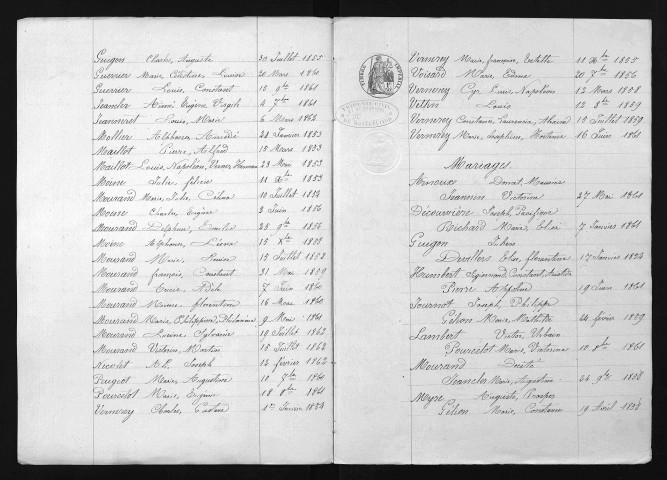 Guigon Charles, Auguste 30 Juillet 1855
Guerrier Marie, Célestine, Louise 20 Mars 1860
Guerrier Louis, Constant 15 9bre 1861
Jeancler Henri Eugène Virgile 4 7bre 1861
Jeanneret Louis, Marie 6 Mars 1862
Mollier Alphonse, 28 Janvier 1853
Maillot Pierre, Alfred 15 Mars 1853
Maillot Louis, Napoléon, 23 Mars 1853
Moine Julie, félicie 11 Xbre 1853
Mourand Marie, Julie, Célina 10 Juillet 1854
Moine Charles Eugène 3 Juin 1856
Mourand Delphine, Emilie 25 9bre 1856
Moine Alphonse, Léon 15 Xbre 1858
Mourand Marie, Louise 13 Juillet 1858
Mourand françois, Constant 31 Mai 1859
Mourand Marie, Adèle 7 Juin 1860
Mourand Marie, florentine 16 Mars 1860
Mourand Marie, Philippine, Philomène 9 Mai 1861
Mourand Louise Sylvanie 19 Juillet 1862
Mourand Victorin, Martin 15 Juillet 1862
Joseph 12 février 1862
Peugeot Marie, Augustine 10 7bre 1860
Pourcelot Marie, Eugénie 18 8bre 1861
Vermerey Charles, Gustave 1er Janvier 1854
Vernerey Marie, françoise, Estelle 11 Xbre 1855
Voisard Marie, Edma 20 7bre 1856
Vernerey Cyr Louis, Napoléon 12 Mars 1858
Louis 12 8bre 1859
Vernerey Constance, Laurencia, 15 Juillet 1859
Vernerey Marie, Joséphine, Hortense 16 Juin 1861
Mariages.
Arnoux Donat, Maxime
Jeannin Victorine 27 Mai 1861
Découvrière Joseph, Pacifique
Richard Marie, Elise 7 Janvier 1861
Guigon Tibère
Devillers Elise, florentine 17 Janvier 1854
Humbert Sigismond, Constant,
Pierre Appoline 19 Juin 1861
Journot Joseph, Philippe
Gélion Marie, Mathilde 24 février 1859
Lambert Victor, Urbain
Pourcelot Marie, Victorine 10 1861
Mourand
Jeancler Marie, Augustine 24 9bre 1858
Myre Auguste, Prosper
Gélion Marie, Constance 19 Avril 1858